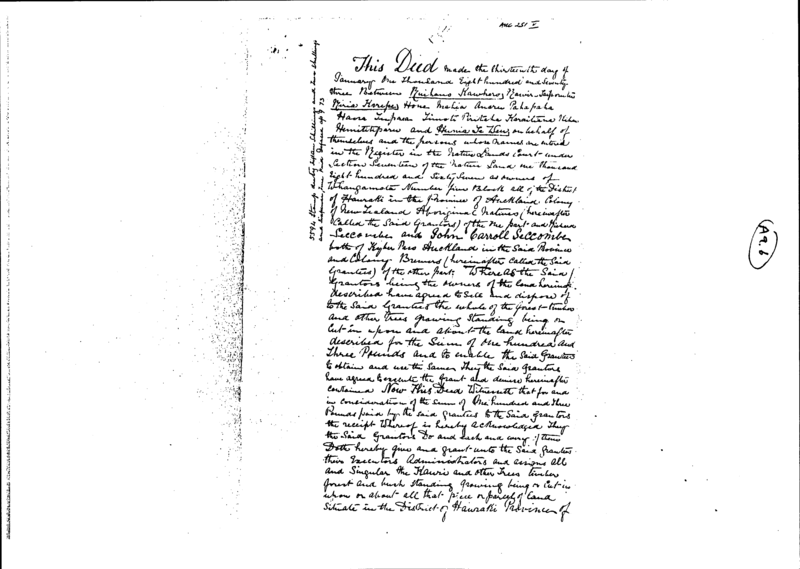 AAC 251 V
This Deed made the thirteenth day of
January One thousand Eight hundred and Seventy
three Between
Hona Matia
Timoti
and Hunia Te on behalf of
themselves and the persons whose names are entered
in the Register in the Native Lands Court under
Section Seventeen of the Native Land one thousand
Eight hundred and Sixty Seven as owners of
Whangamata Number five Block all of the District
of Hauraki in the Province of Auckland Colony
of New Zealand Aboriginal Natives (hereinafter
Called the Said Grantors) of the one part and
Seccombe and John Carroll Seccombe
both of Kyber Pass Auckland in the Said Province
and Colony Brewers (hereinafter called the Said
Grantees) of the other part: Whereas the Said
Grantors being the owners of the land herein
described have agreed to Sell and dispose of
to the Said Grantees the whole of the forest timber
and other trees growing Standing being or
Cut in upon and about the land hereinafter
described for the Sum of One hundred and
Three Pounds and to enable the Said Grantees
to obtain and use the Same They the Said Grantors
have agreed to execute the Grant and demise hereinafter
contained Now This Deed Witnesseth that for and
in consideration of the sum of One hundred and three
Pounds paid by the said Grantees to the Said Grantors
the receipt Whereof is hereby acknowledged They
the Said Grantors Do and each and every of them
Doth hereby give and grant unto the Said Grantees
their Executors Administrators and assigns all
and Singular the Kauri and other Trees timber
forest and bush Standing growing being or Cut in
upon or about all that piece or parcel of land
Situate in the District of Hauraki Province of
A9.6